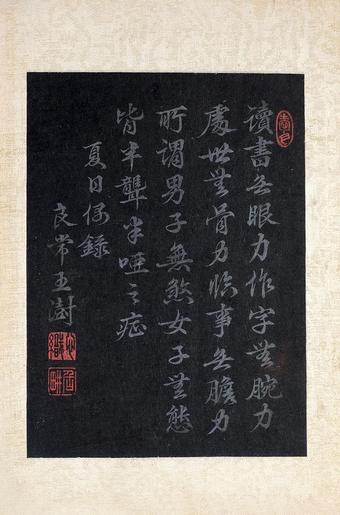 讀書无眼力作字無腕力
處世無骨力臨事无膽力
所謂男子無煞女子無態
皆半聾半啞之症
夏日偶錄
良常王澍